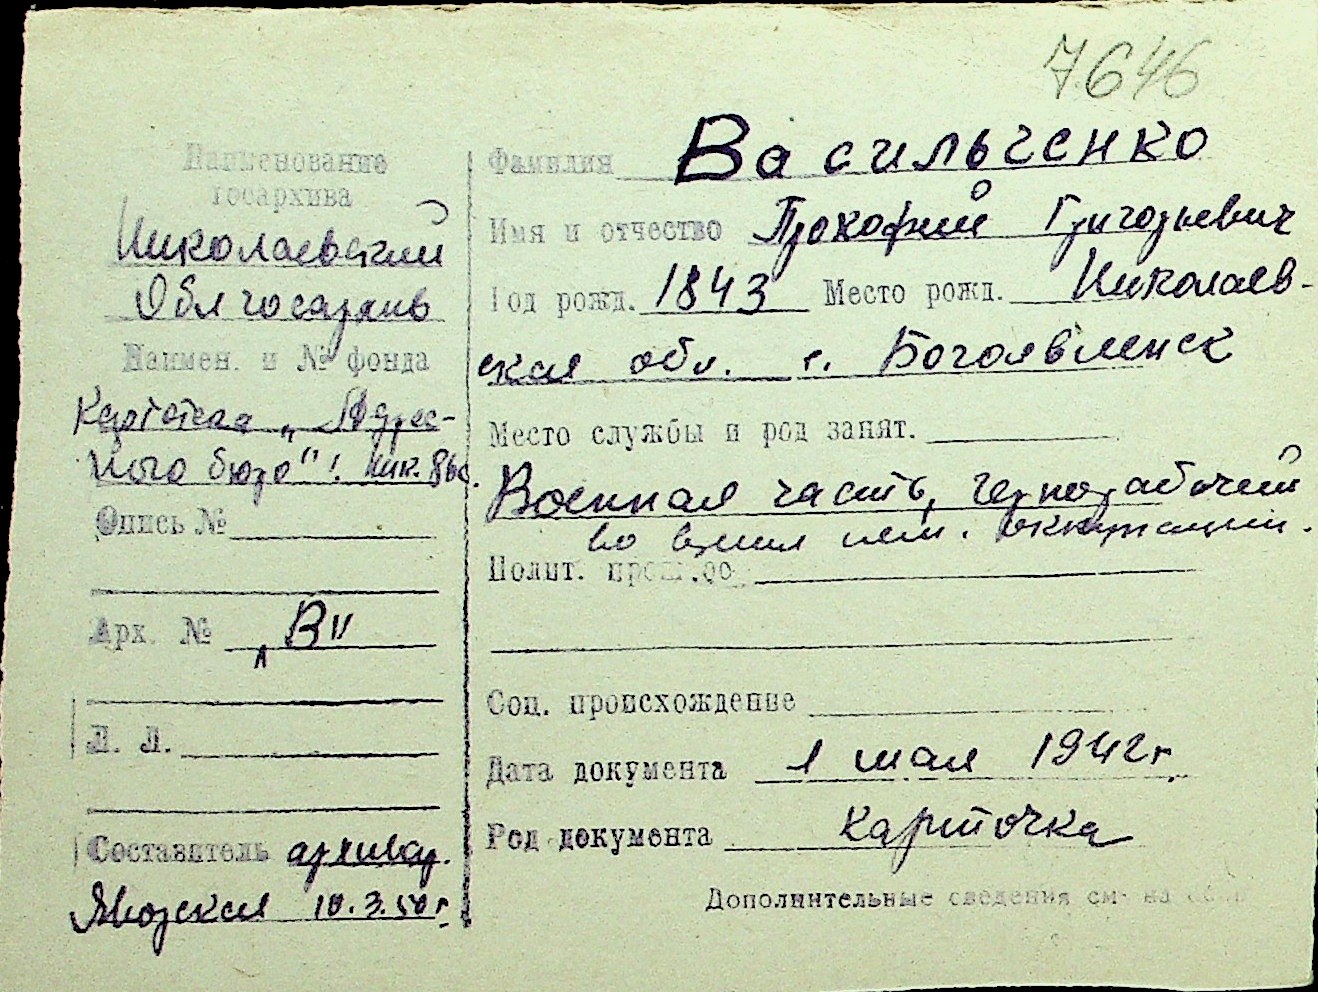 7646
Наименование
госархива
Николаевский
Облгосархив
Наимен. и № фонда
Картотека „Адрес-
ного бюро"
Опись №
Арх. № „В"
Л. Л.
Составитель архивар.
Яворская 10.3.50 г.
Фамилия Васильченко
Имя и отчество Прокофий Григорьевич
Год рожд. 1843 Место рожд. Николаев-
ская обл. г. Богоявленск
Место службы и род занят.
Военная часть, чернорабочий
во время нем. оккупации.
Полит. прош.
Соц. происхождение
Дата документа 1 мая 1942 г.
Род документа карточка
Дополнительные сведения см. на обор.